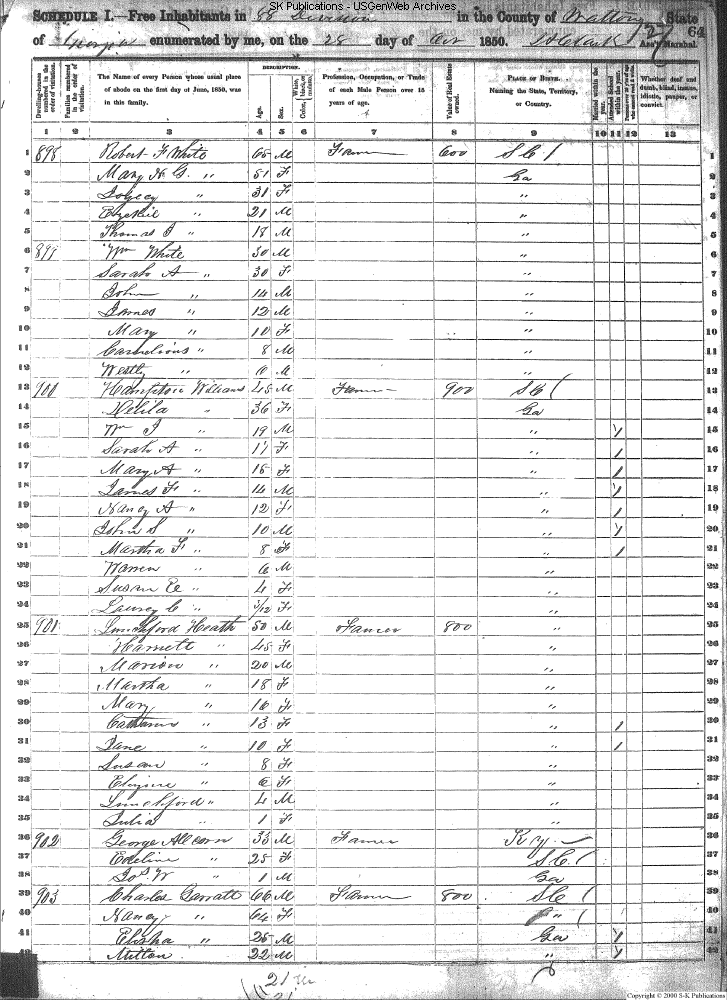 SK Publications - USGenWeb Archives
SCHEDULE I.—Free Inhabitants in 88 Division in the County of Walton State
of Georgia enumerated by me, on the 28 day of Oct 1850. Ass't Marshal.
64
DESCRIPTION.
Dwelling-houses numbered in the order of visitation.
Families numbered in the order of visitation.
The Name of every Person whose usual place of abode on the first day of June, 1850, was in this family.
Age.
Sex.
White, black, or mulatto.
Color
Profession, Occupation, or Trade of each Male Person over 15 years of age.
Value of Real Estate owned.
PLACE OF BIRTH. Naming the State, Territory, or Country.
Married within the year.
Attended School within the year.
Whether deaf and dumb, blind, insane, idiotic, pauper, or convict.
1 2 3 4 5 6 7 8 9 10 11 12 13
1 898 Robert F White 65 M Farmer 600 SC 1
2 Mary H G. " 51 F Ga 2
3 " 31 F " 3
4 Ezekiel " 21 M " 4
5 Thomas J " 18 M " 5
6 899 Wm White 30 M " 6
7 Sarah A " 30 F " 7
8 John " 14 M " 8
9 James " 12 M " 9
10 Mary " 10 F " 10
11 " 8 M " 11
12 Westly " 6 M " 12
13 900 Hampton Williams 45 M Farmer 900 SC 13
14 Delila " 36 F Ga 14
15 Wm J " 19 M " 15
16 Sarah A " 17 F " 16
17 Mary A " 15 F " 17
18 James F " 14 M " 18
19 Nancy A " 12 F " 19
20 John S " 10 M " 20
21 Martha F " 8 F " 21
22 Warren " 6 M " 22
23 Susan E " 4 F " 23
24 C " /12 F " 24
25 901 Heath 50 M Farmer 800 " 25
26 Harriett " 45 F " 26
27 Marion " 20 M " 27
28 Martha " 18 F " 28
29 Mary " 16 F " 29
30 " 13 F " 30
31 Jane " 10 F " 31
32 Susan " 8 F " 32
33 " 6 F " 33
34 " 4 M " 34
35 Julia " 1 F " 35
36 902 George Allcorn 33 M Farmer Ky 36
37 Edeline " 25 F SC 37
38 Jos W " 1 M Ga 38
39 903 Charles Garratt 66 M Farmer 800 SC 39
40 Nancy " 64 F " 40
41 Elisha " 25 M Ga 41
42 Milton 22 M " 42
21 m
21
Copyright © 2000 S-K Publications